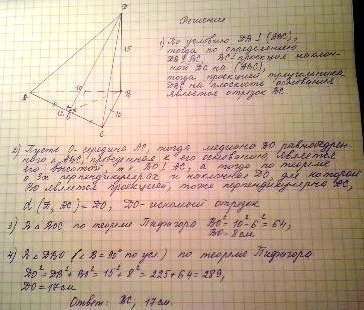 Решение
1) По условию DB ⊥ (ABC),
тогда по определению
DB ⊥ BC, BC - проекция наклон-
ной DC на (ABC),
тогда проекцией треугольника
DBC на плоскость основания
является отрезок BC
D
15
B
C
2) Пусть O - середина AC, тогда медиана BO равнобедрен-
ного △ABC, проведенная к его основанию, является
его высотой, т.е. BO ⊥ AC, а тогда по теореме
о 3-х перпендикулярах и наклонная DO, для которой
BO является проекцией, тоже перпендикулярна AC,
DO - искомый отрезок
3) В △BOC по теореме Пифагора BO² = 10² - 6² = 64,
BO = 8 см
4) В △DBO (∠B = 90° по усл.) по теореме Пифагора
DO² = DB² + BO² = 15² + 8² = 225 + 64 = 289,
DO = 17 см
Ответ: BC, 17 см.